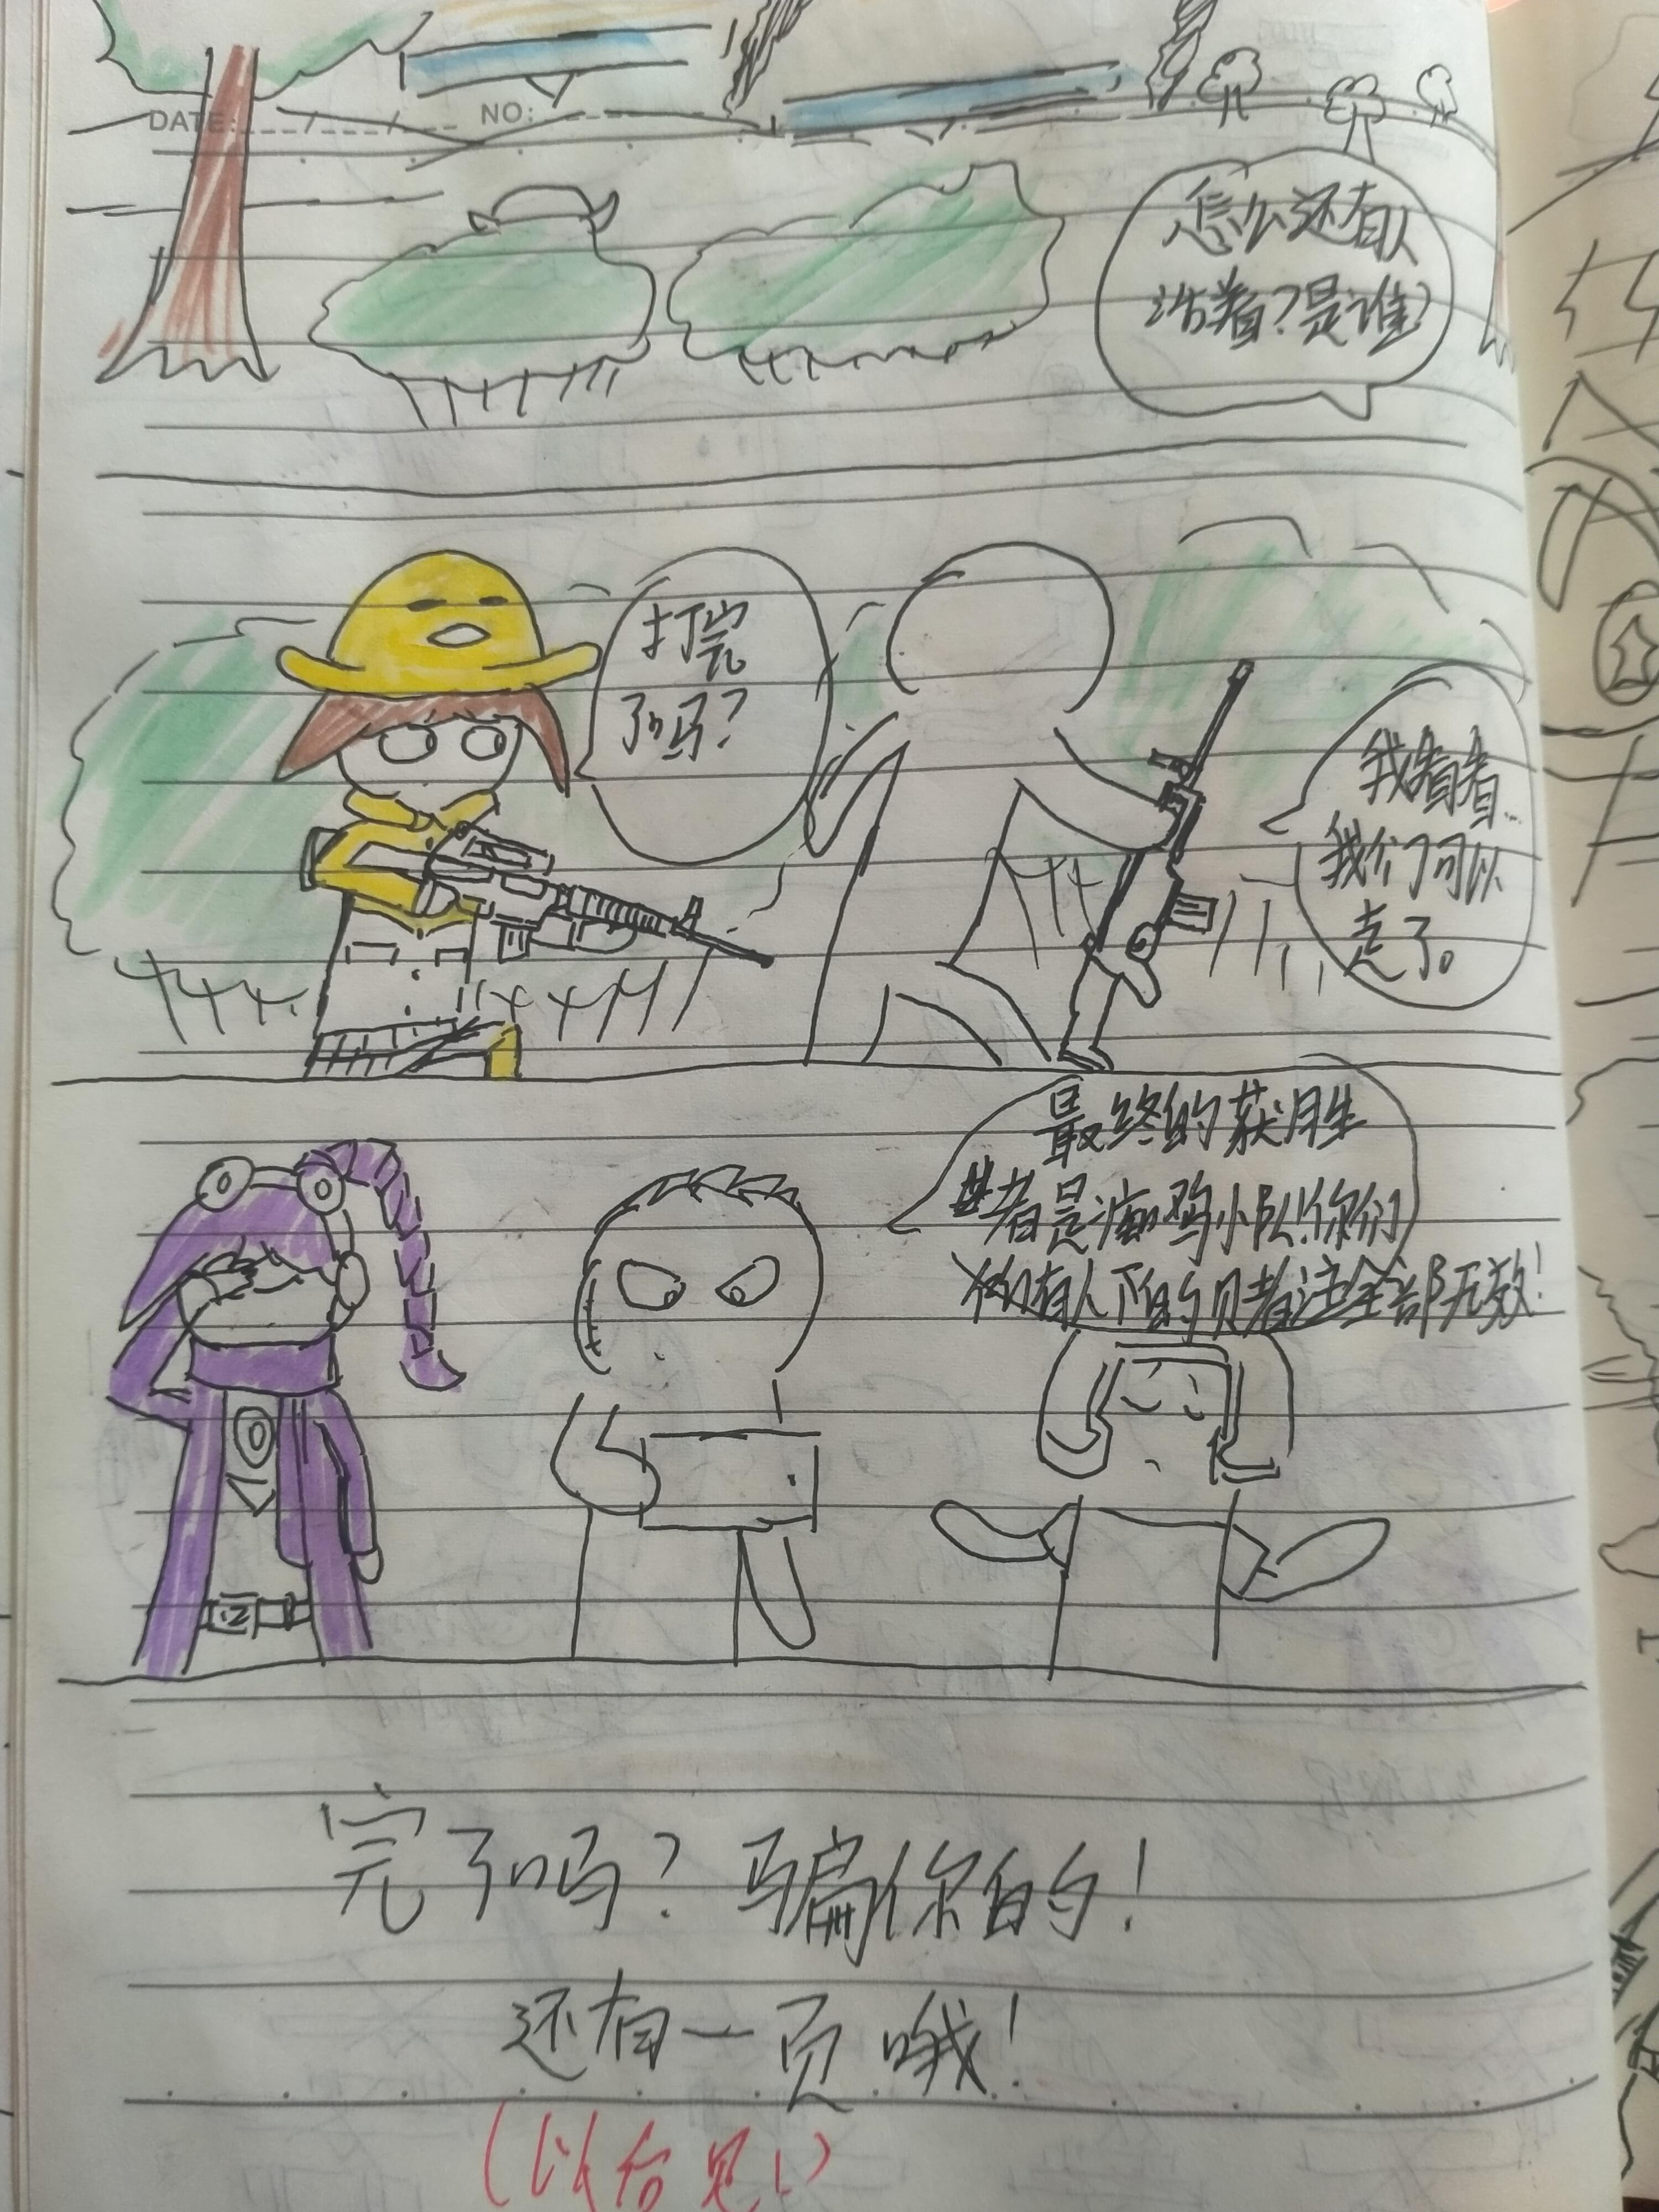 DATE: ___/___/___ NO:
怎么还有人
活着?是谁?
打完
了吗?
我看看…
我们可以
走了。
最终的获胜
者是 鸡小队!你们
所有人下的赌注全部无效!
完了吗?骗你的!
还有一页哦!
(以后见!)